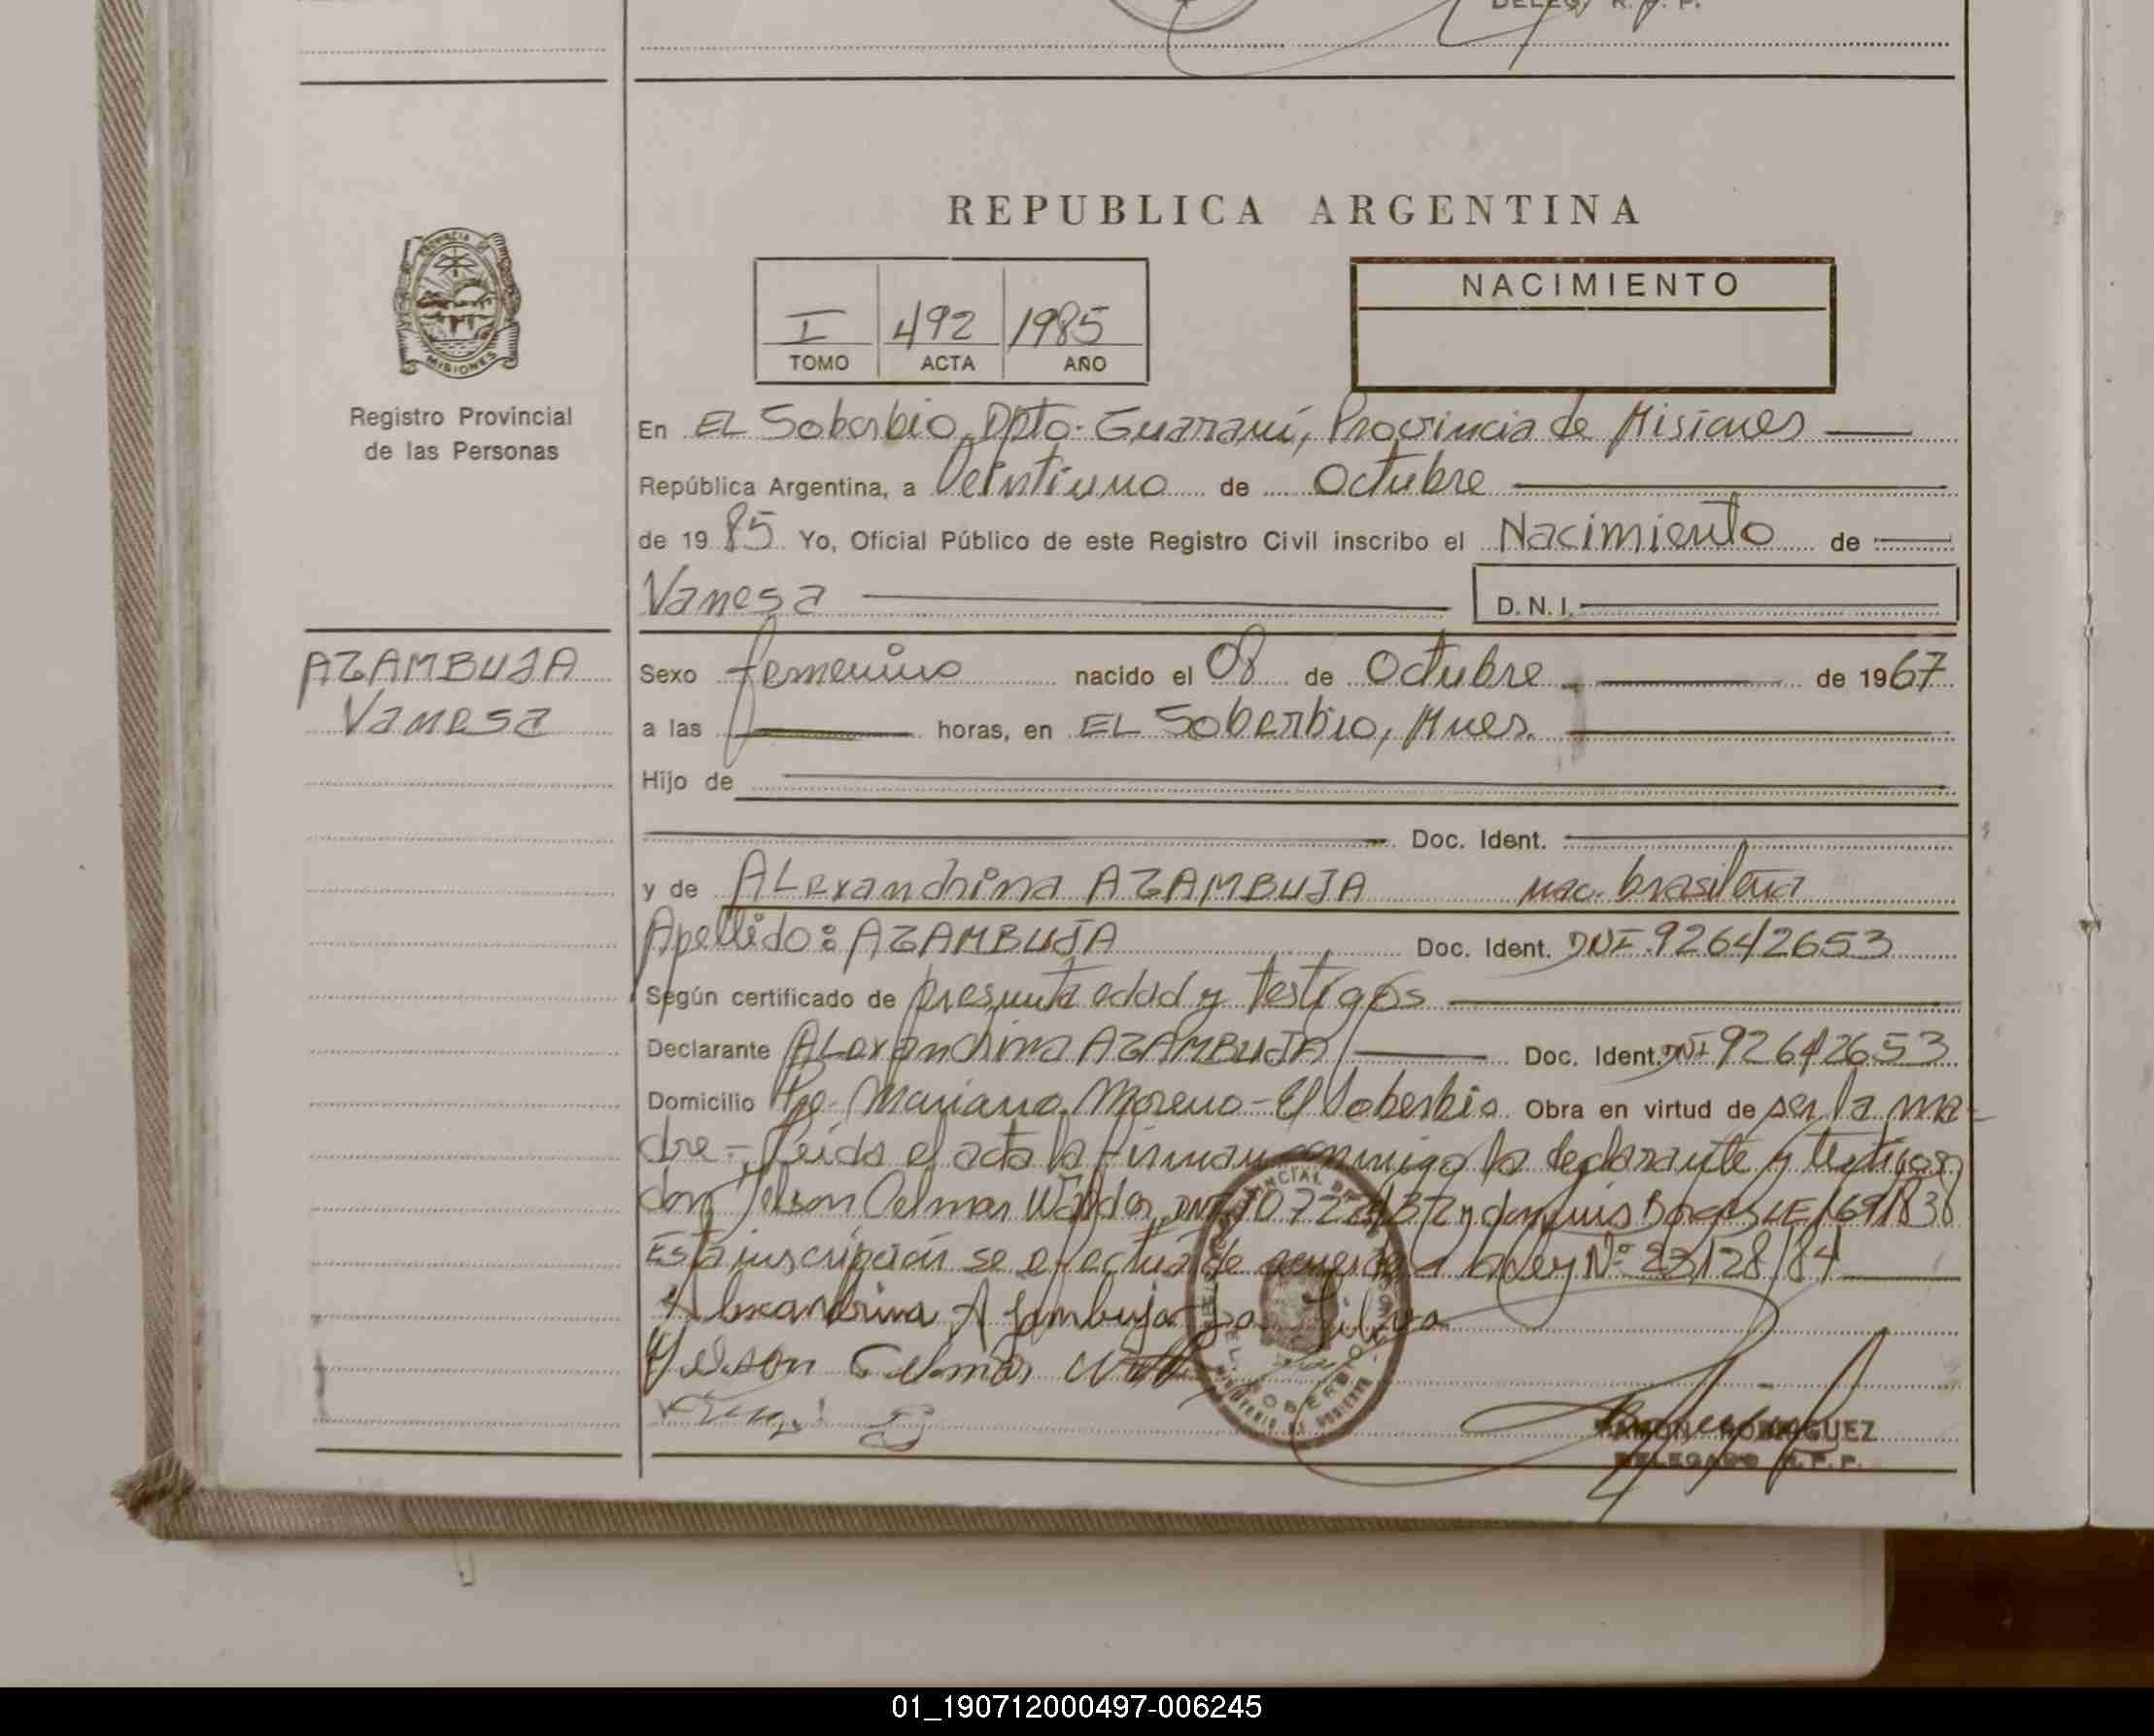 DELEG. R. P. P.
REPUBLICA ARGENTINA
PROVINCIA DE
MISIONES
Registro Provincial
de las Personas
NACIMIENTO
I 492 1985
TOMO ACTA AÑO
En EL Soberbio, Dpto. Guaraní, Provincia de Misiones
República Argentina, a Veintiuno de Octubre
de 1985 Yo, Oficial Público de este Registro Civil inscribo el Nacimiento de
Vanesa D.N.I.
AZAMBUJA
Vanesa
Sexo femenino nacido el 08 de Octubre de 1967
a las horas, en EL Soberbio, Mnes.
Hijo de
Doc. Ident.
y de ALexandrina AZAMBUJA nac. brasileña
Apellido: AZAMBUJA Doc. Ident. DNI 92642653
Según certificado de presunta edad y testigos
Declarante ALexandrina AZAMBUJA Doc. Ident. DNI 92642653
Domicilio Mariano Moreno - El Soberbio Obra en virtud de ser la ma-
dre - Leida el acta la firman conmigo la declarante y testigos
don Celmar DNI y don Luis Borges LE 1691838
Esta inscripción se efectua de acuerdo a la Ley Nº 23128/84
Alexandrina Azambuja da Silva
Celmar
EL SOBERBIO
MINISTERIO DE GOBIERNO
RAMON RODRIGUEZ
DELEGADO R. P. P.
01_190712000497-006245